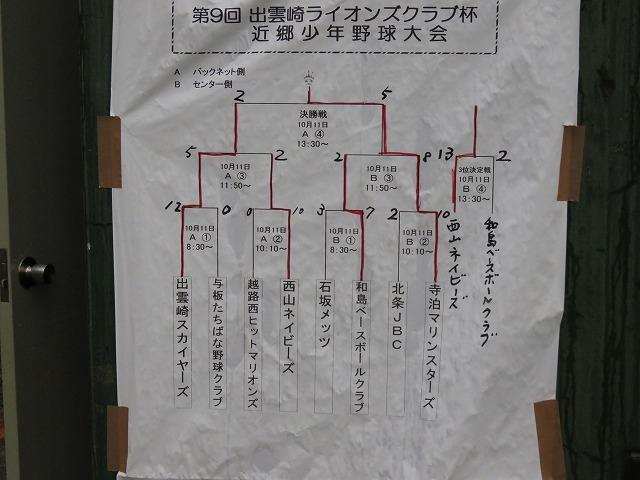 第9回 出雲崎ライオンズクラブ杯
近郷少年野球大会
A バックネット側
B センター側
2 5
決勝戦
10月11日
A ④
13:30～
5 2 2 8 13 2
10月11日
A ③
11:50～
10月11日
B ③
11:50～
3位決定戦
10月11日
B ④
13:30～
12 0 0 10 3 7 2 10
10月11日
A ①
8:30～
10月11日
A ②
10:10～
10月11日
B ①
8:30～
10月11日
B ②
10:10～
出雲崎スカイヤーズ
与板たちばな野球クラブ
越路西ヒットマリオンズ
西山ネイビーズ
石坂メッツ
和島ベースボールクラブ
北条JBC
寺泊マリンスターズ
西山ネイビーズ
和島ベースボールクラブ